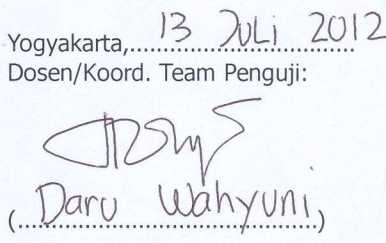 Yogyakarta, 13 Juli 2012
Dosen/Koord. Team Penguji:
(Daru Wahyuni)